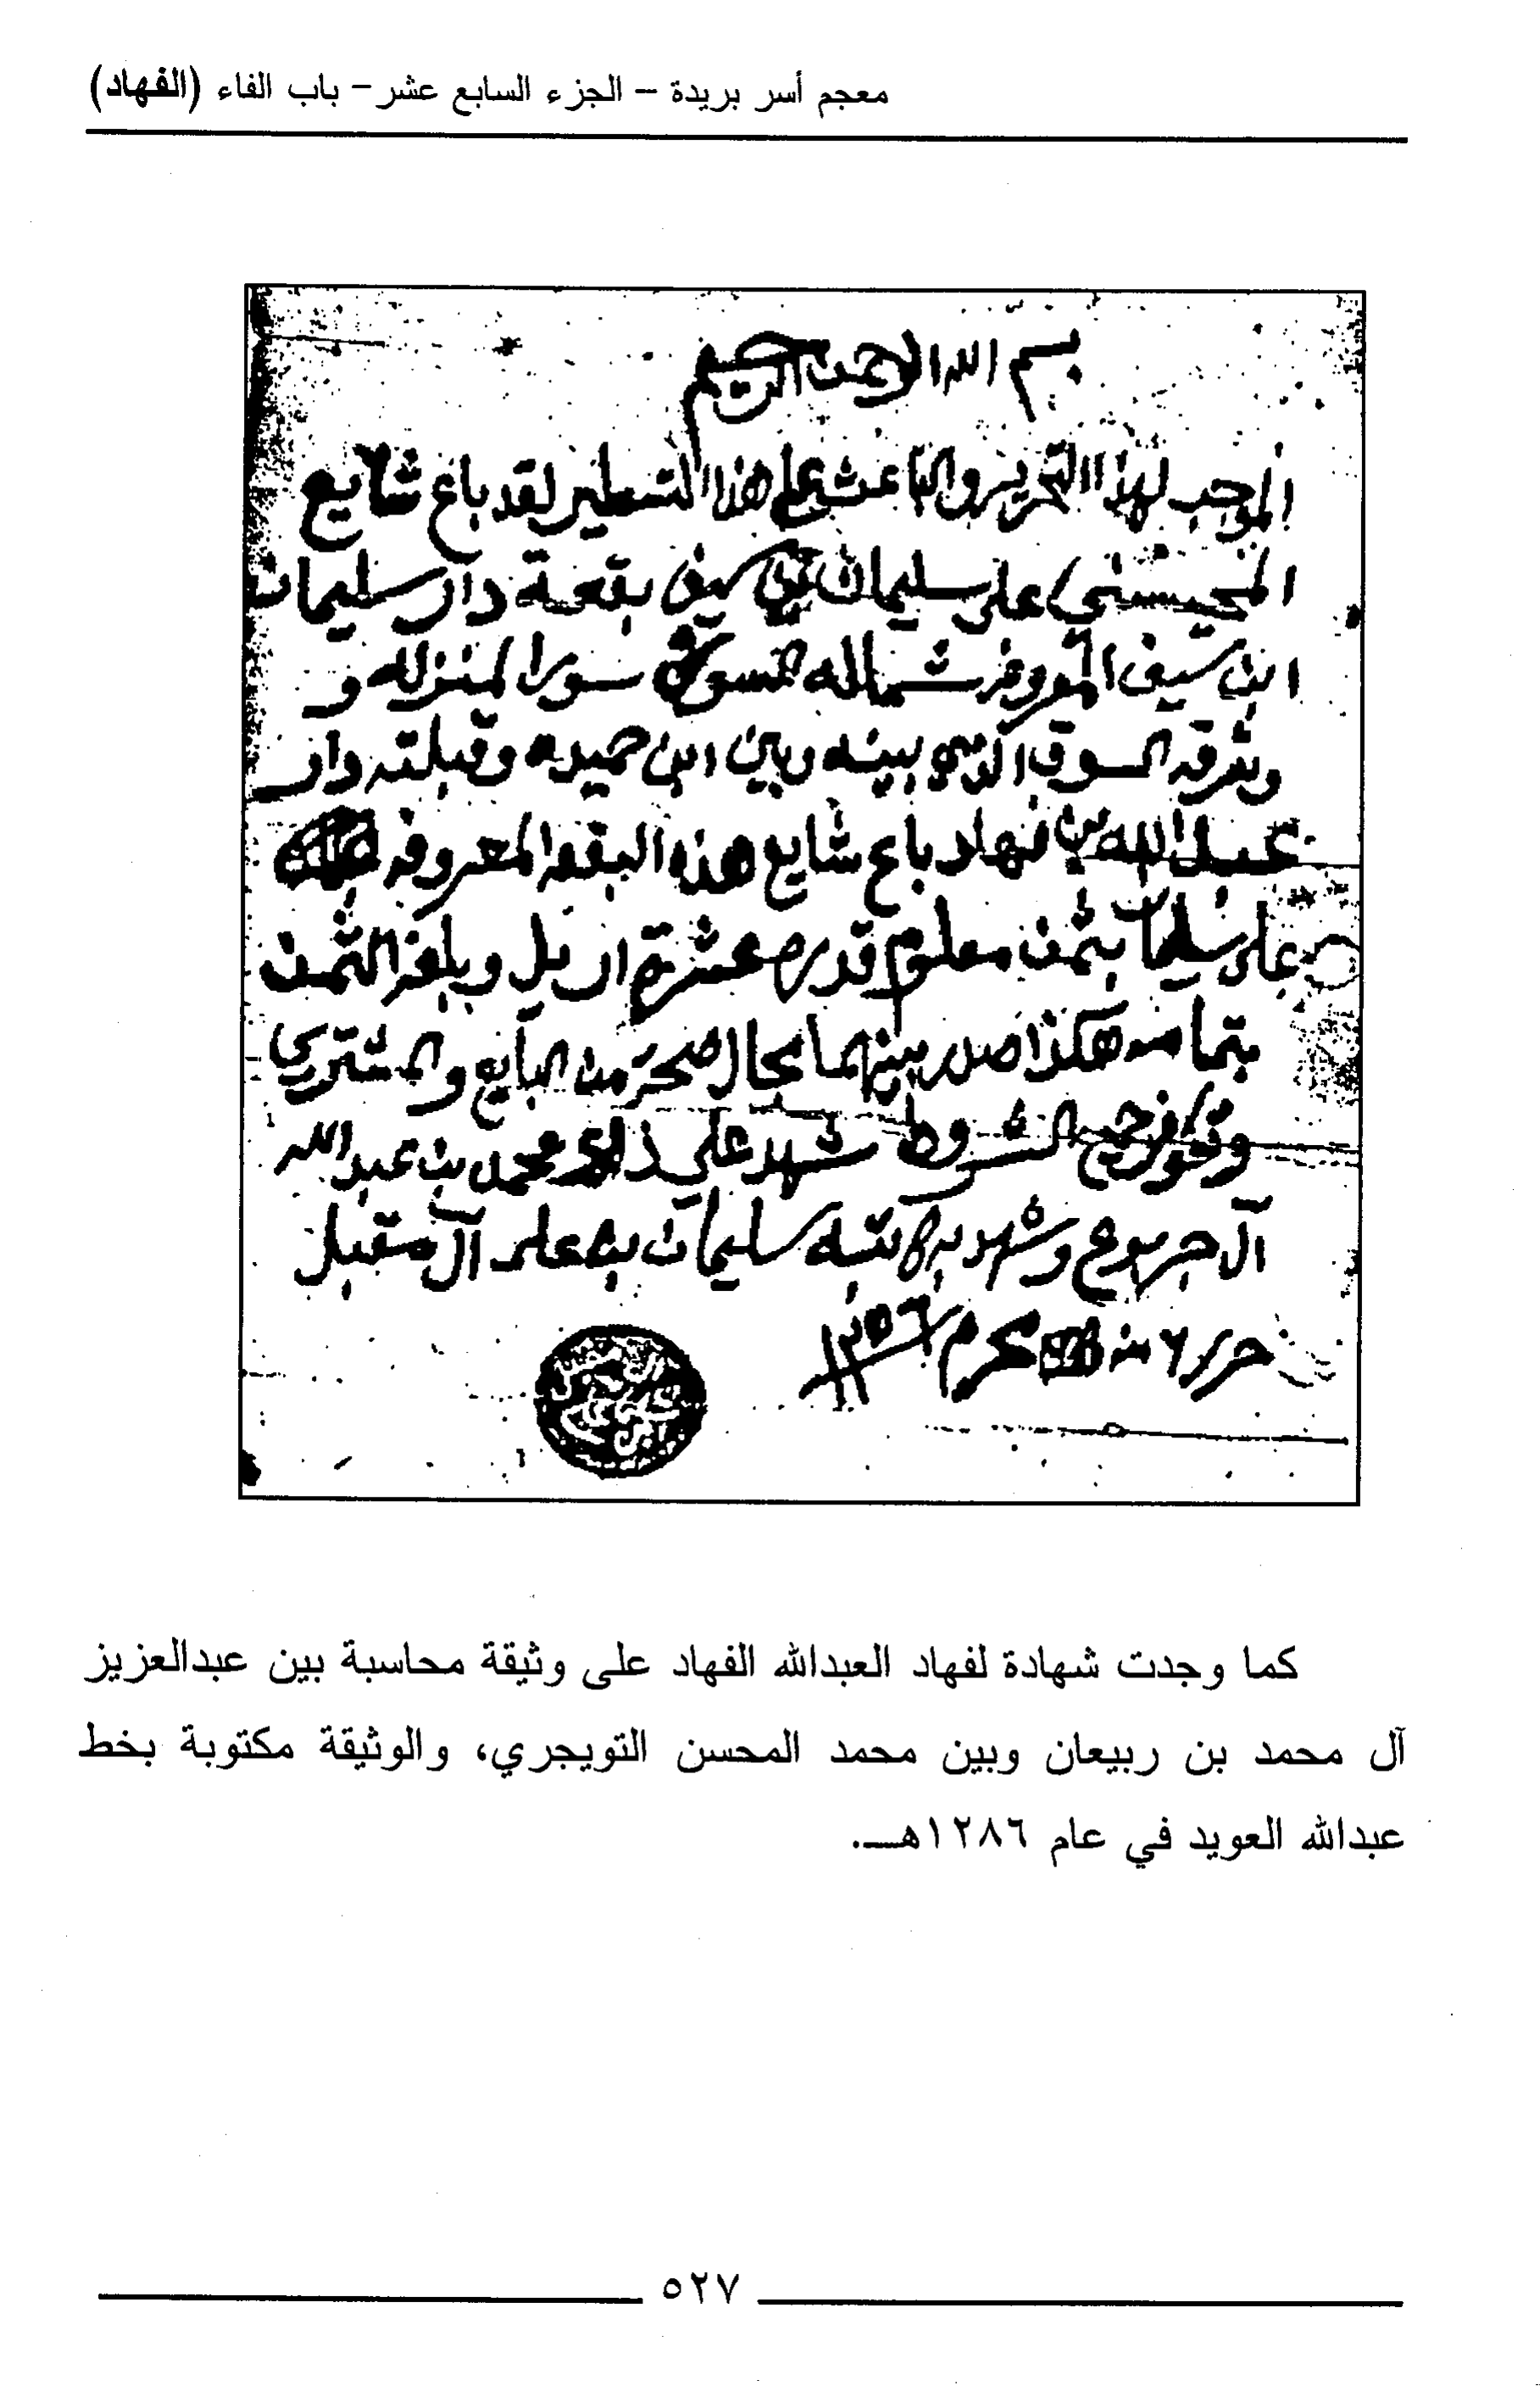 معجم أسر بريدة – الجزء السابع عشر – باب الفاء (الفهاد)
بسم الله الرحمن الرحيم
الموجب لهذا التحرير والباعث على هذا التسطير لقد باع شايع
على سليمان بن سيف بقعة دار سليمان
ابن سيف المعروفه شماله سور المنزله و
وشرقه السوق الذي بينه وبين ابن حميده وقبلته دار
عبد الله بن فهاد باع شايع هذه البقعه المعروفه
على سليمان بثمن معلوم قدره عشرة اريل وبلغه الثمن
بتمامه هكذا صدر بينهما بحال صحة من البايع والمشتري
وتوفر جميع الشروط شهد على ذلك محمد بن عبد الله
آل جربوع وشهد به كاتبه سليمان بن علي آل مقبل
حرر ٦ من محرم ١٢٥٦
كما وجدت شهادة لفهاد العبدالله الفهاد على وثيقة محاسبة بين عبدالعزيز
آل محمد بن ربيعان وبين محمد المحسن التويجري، والوثيقة مكتوبة بخط
عبدالله العويد في عام ١٢٨٦هـ.
٥٢٧